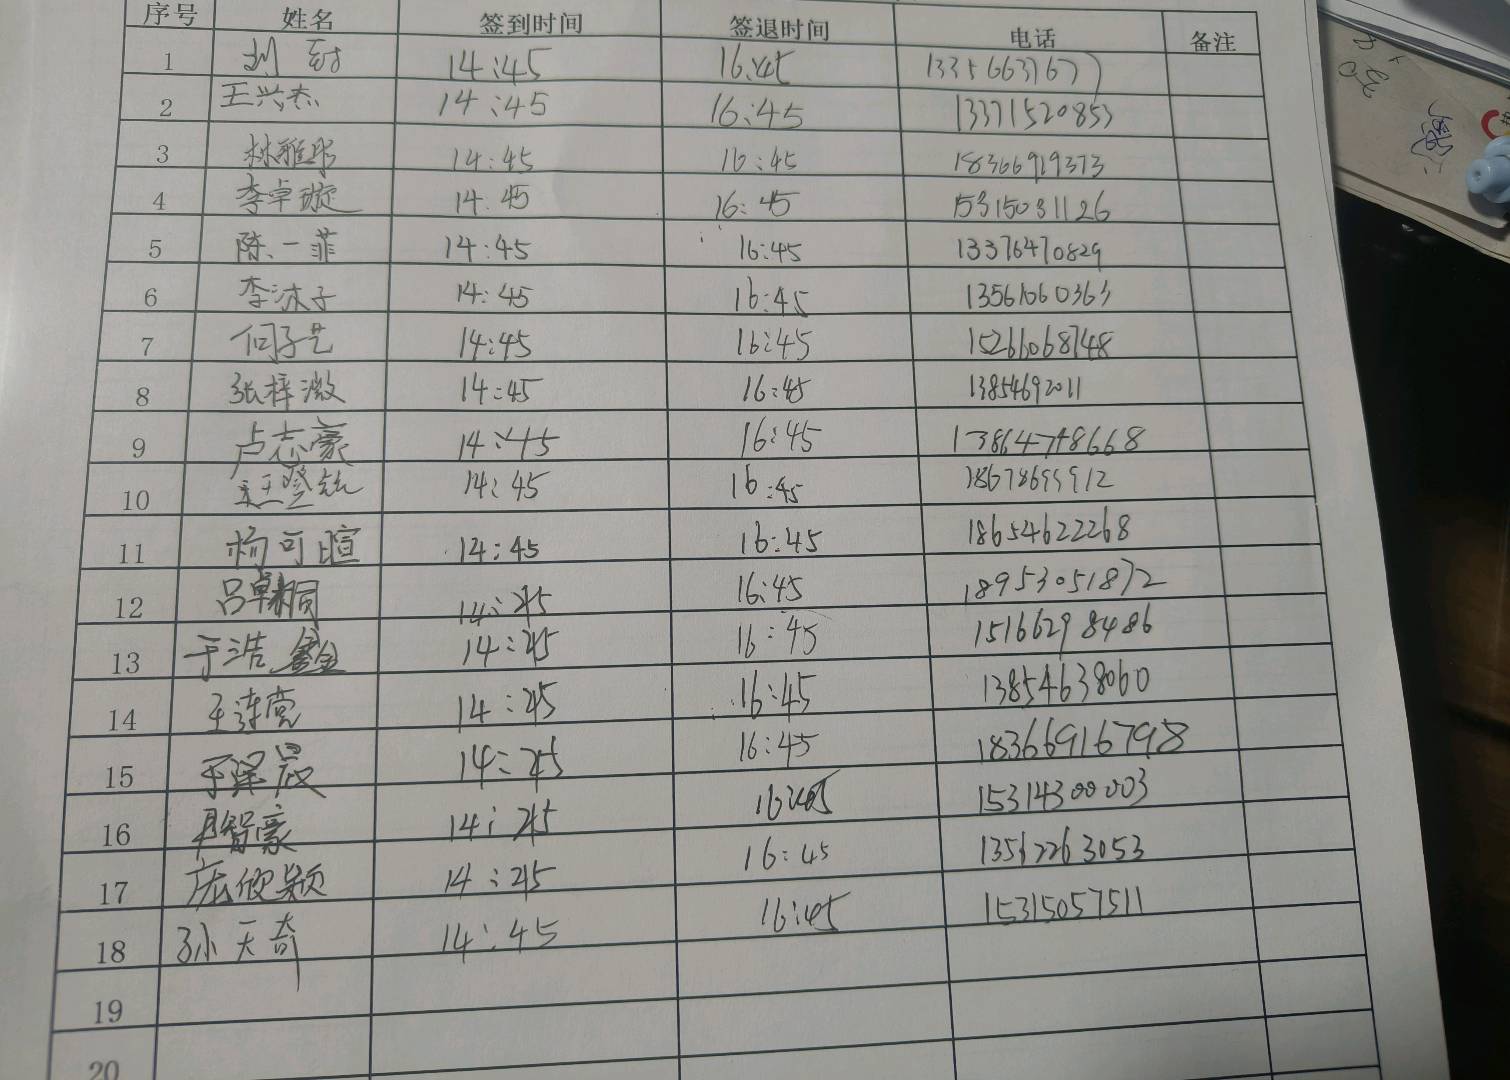 序号 姓名 签到时间 签退时间 电话 备注
1 刘 14:45 16:45
2 王兴杰 14:45 16:45 13371520853
3 林雅彤 14:45 16:45 18366919373
4 李卓璇 14:45 16:45 15315031126
5 陈一菲 14:45 16:45 13376470829
6 李沐子 14:45 16:45 13561060363
7 何子艺 14:45 16:45 15266068748
8 张梓微 14:45 16:45 13854692011
9 卢志豪 14:45 16:45 13864748668
10 14:45 16:45
11 杨可暄 14:45 16:45 18654622268
12 吕卓桐 14:45 16:45 18953051872
13 于浩鑫 14:45 16:45 15166298486
14 王 14:45 16:45 13854638060
15 于泽晟 14:45 16:45 18366916798
16 智豪 14:45 16:45 15314300003
17 庞欣颖 14:45 16:45 13562263053
18 孙天奇 14:45 16:45 15315057511
19
20